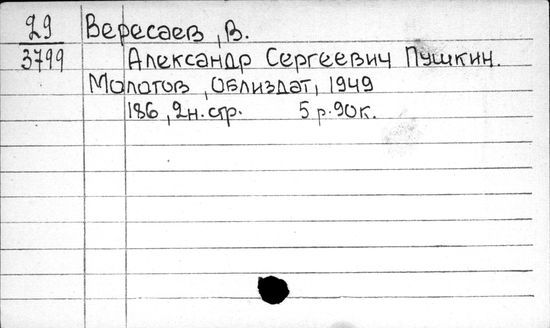 29 Вересаев, В.
3799 Александр Сергеевич Пушкин.
Молотов, Облиздат, 1949
186, 2н. стр. 5 р. 90к.